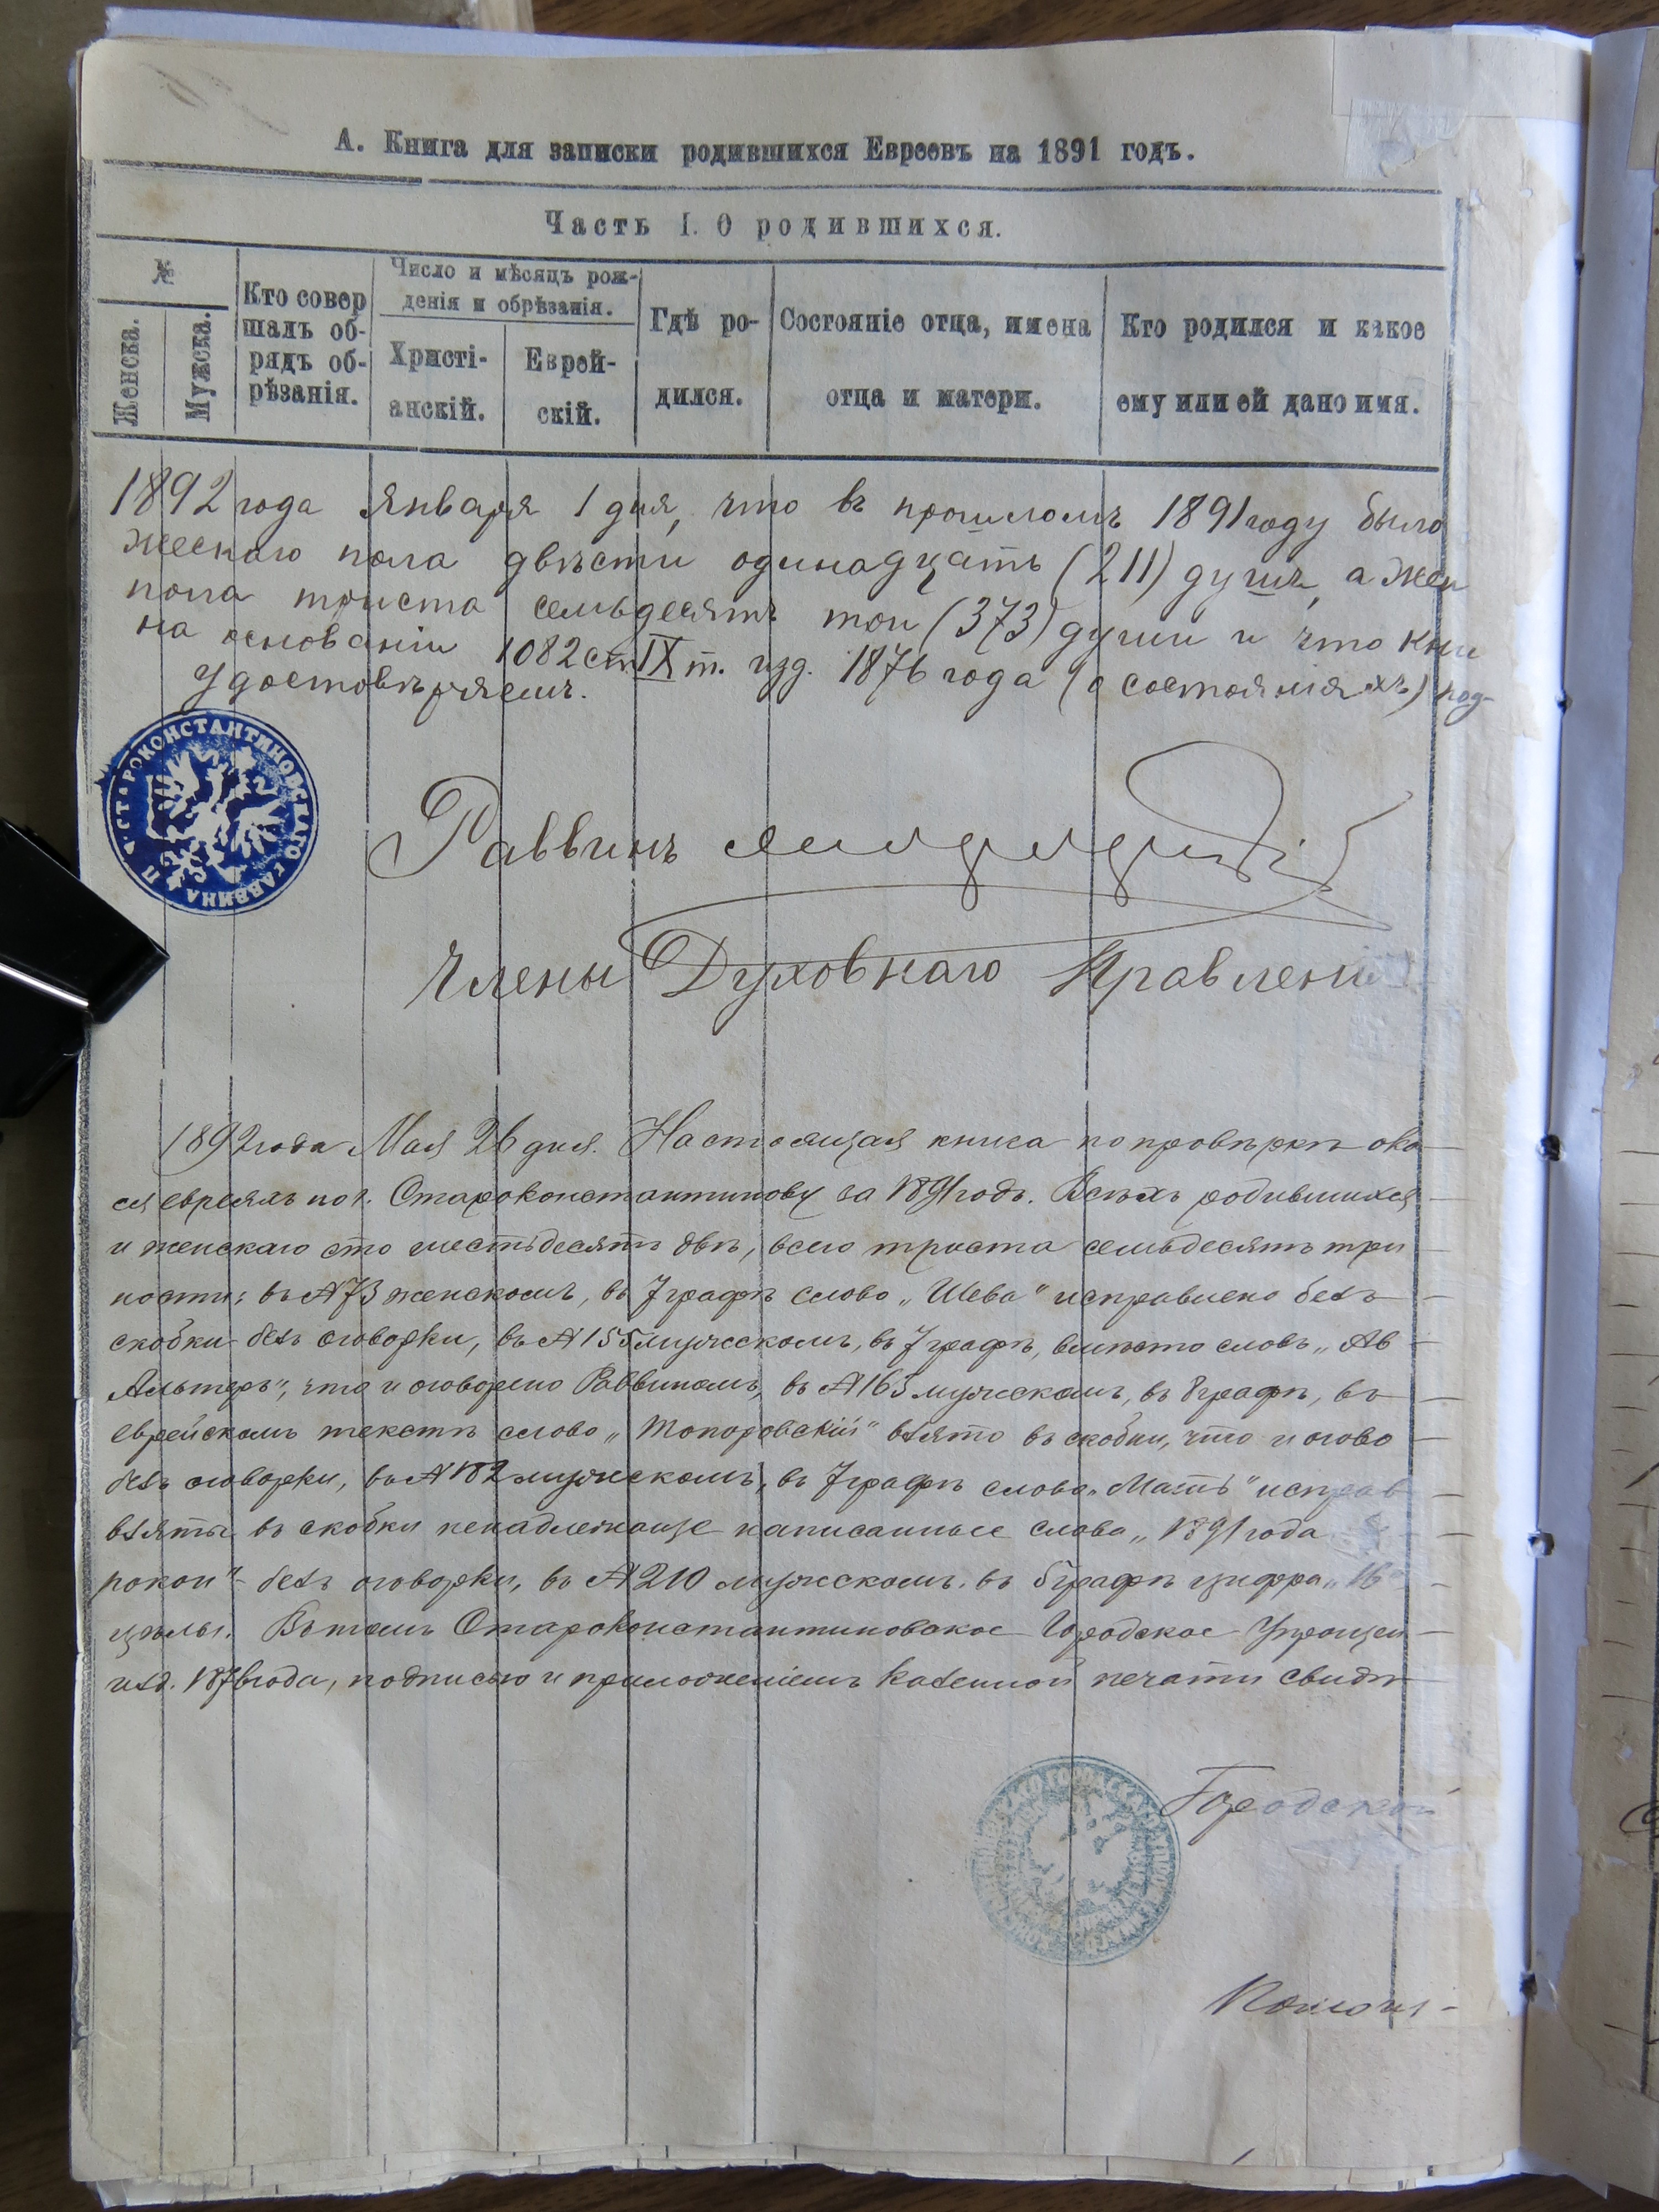 А. Книга для записки родившихся Евреевъ на 1891 годъ.
Часть I. О родившихся.
№
Женска.
Мужска.
Кто совер
шалъ об-
рядъ об-
рѣзанія.
Число и мѣсяцъ рож-
денія и обрѣзанія.
Христі-
анскій.
Еврей-
скій.
Гдѣ ро-
дился.
Состояніе отца, имена
отца и матери.
Кто родился и какое
ему или ей дано имя.
1892 года Января 1 дня, что въ прошломъ 1891 году было
жескаго пола двѣсти одинадцать (211) душъ, а жен
пола триста семьдесятъ три (373) души и что кни
на основаніи 1082 ст. IX т. изд. 1876 года (о состояніяхъ) под-
удостовѣряемъ.
СТАРОКОНСТАНТИНОВСКАГО РАВВИНА
Раввинъ
Члены Духовнаго Правлені
1892 года Мая 26 дня. Настоящая книга по провѣркѣ ока
ся евреямъ по г. Староконстантинову за 1891 годъ. Всѣхъ родившихся
и женскаго сто шестьдесятъ двѣ, всего триста семьдесятъ три
ности: въ № 73 женскомъ, въ 7 графѣ слово „Шева" исправлено безъ
скобки безъ оговорки, въ № 155 мужескомъ, въ 7 графѣ, вмѣсто словъ „Ав
Альтеръ", что и оговорено Раввиномъ, въ № 165 мужескомъ, въ 8 графѣ, въ
еврейскомъ текстѣ слово „Топоровскій" взято въ скобки, что и огово
безъ оговорки, въ № 182 мужескомъ, въ 7 графѣ слово „Мать" исправ
взяты въ скобки ненадлежаще написанные слова „1891 года
роком" безъ оговорки, въ № 210 мужескомъ, въ 5 графѣ цифра „16
цѣлы. Въ томъ Староконстантиновское Городское Упрощен
изд. 1876 года, подписью и приложеніемъ казенной печати свидѣ
Городской
Помощ-